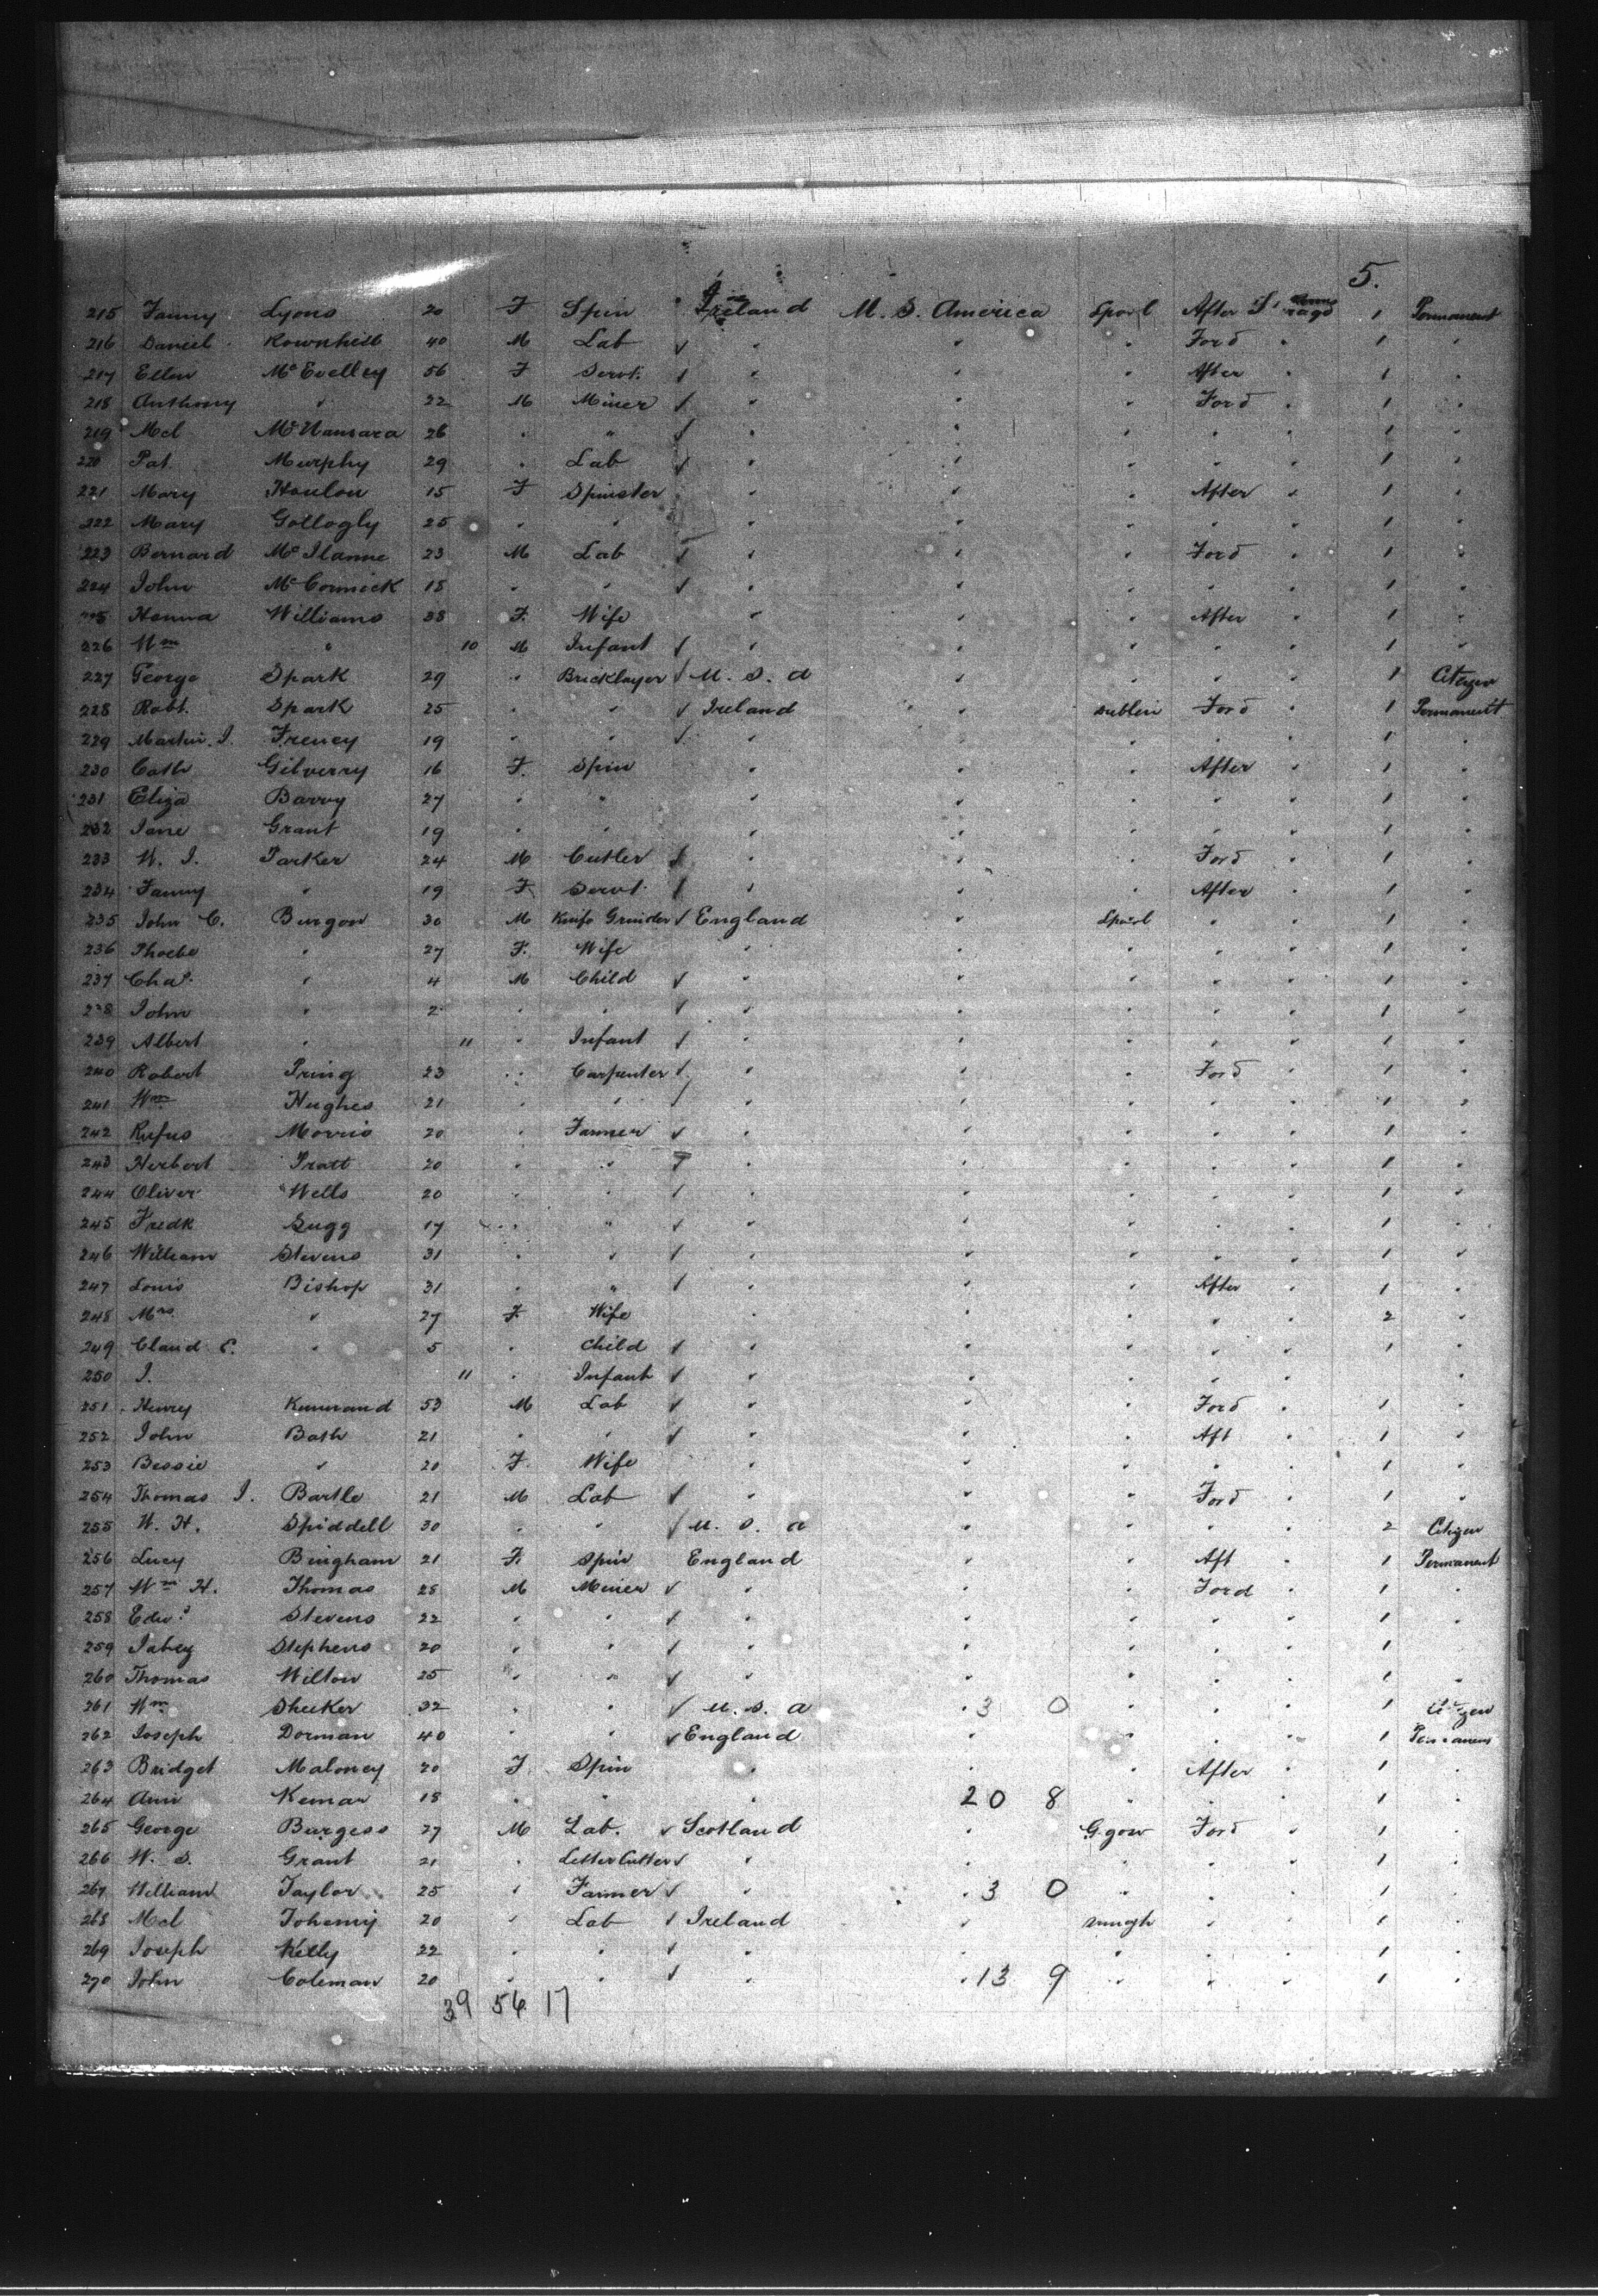 5.
215 Fanny Lyons 20 F Spin Ireland U. S. America Lpool After S. 1 Permanent
216 Daniel 40 M Lab √ " " " Ford " 1 "
217 Ellen McEvelley 56 F Servt. √ " " " After " 1 "
218 Anthony " 22 M Miner √ " " " Ford " 1 "
219 Mcl McNamara 26 " " √ " " " " " 1 "
220 Pat Murphy 29 " Lab √ " " " " " 1 "
221 Mary Hanlon 15 F Spinster " " " After " 1 "
222 Mary Gollogly 25 " " " " " " " 1 "
223 Bernard McIlanne 23 M Lab √ " " " Ford " 1 "
224 John McCormick 18 " " √ " " " " " 1 "
225 Hanna Williams 38 F. Wife " " " After " 1 "
226 Wm " 10 M Infant √ " " " " " 1 "
227 George Spark 29 " Bricklayer √ U. S. A " " " " 1 Citizen
228 Robt. Spark 25 " " √ Ireland " Dublin Ford " 1 Permanent
229 Martin J. Freney 19 " " √ " " " " " 1 "
230 Cath Gilverry 16 F. Spin " " " After " 1 "
231 Eliza Barry 27 " " " " " " " 1 "
232 Jane Grant 19 " " " " " " " 1 "
233 W. J. Parker 24 M Cutler √ " " " Ford " 1 "
234 Fanny " 19 F Servt. √ " " " After " 1 "
235 John C. Burgon 30 M Knife Grinder √ England " Lpool " " 1 "
236 Phoebe " 27 F. Wife " " " " " 1 "
237 Chas. " 4 M Child √ " " " " " 1 "
238 John " 2 " " √ " " " " " 1 "
239 Albert " 11 " Infant √ " " " " " 1 "
240 Robert Pring 23 " Carpenter √ " " " Ford " 1 "
241 Wm Hughes 21 " " √ " " " " " 1 "
242 Rufus Morris 20 " Farmer √ " " " " " 1 "
243 Herbert Pratt 20 " " √ " " " " " 1 "
244 Oliver Wells 20 " " √ " " " " " 1 "
245 Fredk Sugg 17 " " √ " " " " " 1 "
246 William Stevens 31 " " √ " " " " " 1 "
247 Louis Bishop 31 " " √ " " " After " 1 "
248 Mrs. " 27 F. Wife " " " " " 2 "
249 Claud E. " 5 " Child √ " " " " " 1 "
250 J. 11 " Infant √ " " " " " "
251 Henry 53 M Lab √ " " " Ford " 1 "
252 John Bath 21 " " √ " " " Aft " 1 "
253 Bessie " 20 F. Wife " " " " " 1 "
254 Thomas J. Bartle 21 M Lab √ " " " Ford " 1 "
255 W. H. Spiddell 30 " " √ U. S. A " " " " 2 Citizen
256 Lucy Bingham 21 F. Spin England " " Aft " 1 Permanent
257 Wm H. Thomas 28 M Miner √ " " " Ford " 1 "
258 Edwd Stevens 22 " " √ " " " " " 1 "
259 Stephens 20 " " √ " " " " " 1
260 Thomas Wilton 25 " " √ " " " " " 1 "
261 Wm Sheeker 32 " " √ U. S. A " 3 0 " " " 1 Citizen
262 Joseph Dorman 40 " " √ England " " " " 1 Permanent
263 Bridget Maloney 20 F. Spin " " " After " 1 "
264 Ann 18 " " " 20 8 " " " 1 "
265 George Burgess 27 M Lab. √ Scotland " G.gow Ford " 1 "
266 W. S. Grant 21 " Letter Cutter √ " " " " " 1 "
267 William Taylor 25 " Farmer √ " " 3 0 " " " 1 "
268 Mcl 20 " Lab √ Ireland " " " 1 "
269 Joseph Kelly 22 " " √ " " " " " 1 "
270 John Coleman 20 " " √ " " 13 9 " " " 1 "
39 56 17